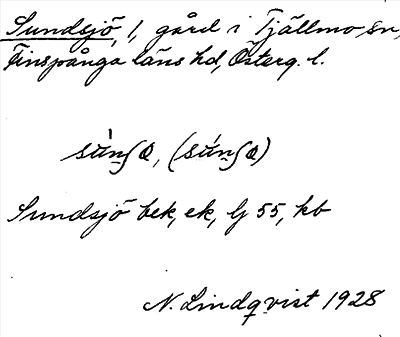 Sundsjö, 1, gård i Tjällmo sn,
Finspånga läns hd, Österg. l.
Sundsjö bek, ek, lj 55, kb
N. Lindqvist 1928